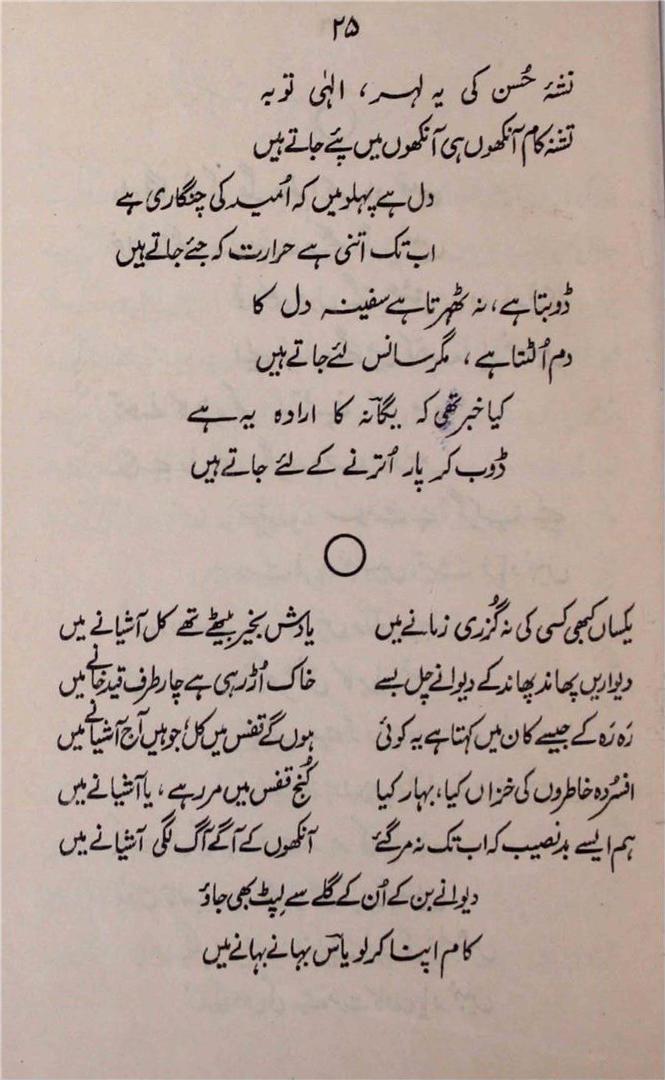 ۲۵
نشۂ حُسن کی یہ لہر، الہٰی توبہ
تشنہ کام آنکھوں ہی آنکھوں میں پئے جاتے ہیں
دل ہے پہلو میں کہ اُمید کی چنگاری ہے
اب تک اتنی ہے حرارت کہ جئے جاتے ہیں
ڈوبتا ہے، نہ ٹھہرتا ہے سفینہ دل کا
دم اُلٹتا ہے، مگر سانس لئے جاتے ہیں
کیا خبر تھی کہ یگانہؔ کا ارادہ یہ ہے
ڈوب کر پار اُترنے کے لئے جاتے ہیں
یکساں کبھی کسی کی نہ گزُری زمانے میں یادش بخیر بیٹھے تھے کل آشیانے میں
دیواریں پھاند پھاند کے دیوانے چل بسے خاک اُڑ رہی ہے چار طرف قید خانے میں
رَہ رَہ کے جیسے کان میں کہتا ہے یہ کوئی ہوں گے قفس میں کل، جو ہیں آج آشیانے میں
افسرُدہ خاطروں کی خزاں کیا، بہار کیا کُنج قفس میں مر رہے، یا آشیانے میں
ہم ایسے بد نصیب کہ اب تک نہ مر گئے آنکھوں کے آگے آگ لگی آشیانے میں
دیوانے بن کے اُن کے گلے سے لِپٹ بھی جاؤ
کام اپنا کر لو یاسؔ بہانے بہانے میں